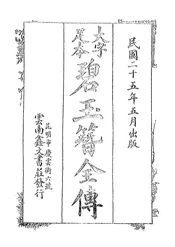 民國二十五年五月出版
大字
足本
碧玉簪全傳
昆明市慶雲街六號
雲南鑫文書莊發行